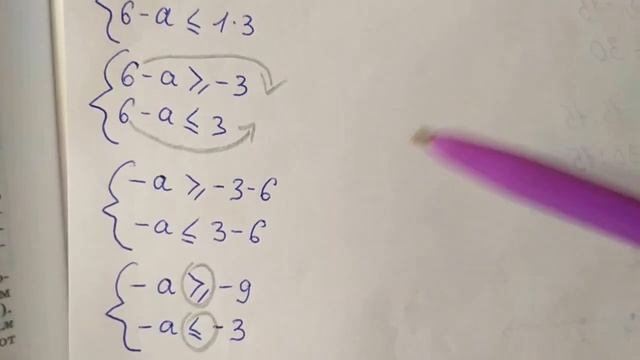 6-a ≤ 1·3
6-a ≥ -3
6-a ≤ 3
-a ≥ -3-6
-a ≤ 3-6
-a ≥ -9
-a ≤ -3